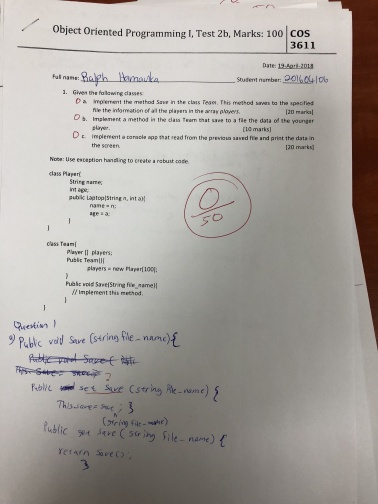 Object Oriented Programming I, Test 2b, Marks: 100
COS
3611
Date: 19-April-2018
Full name: Ralph Student number:
1. Given the following classes:
0 a. Implement the method Save in the class Team. This method saves to the specified
file the information of all the players in the array players. [20 marks]
0 b. Implement a method in the class Team that save to a file the data of the younger
player. [10 marks]
0 c. Implement a console app that read from the previous saved file and print the data in
the screen. [20 marks]
Note: Use exception handling to create a robust code.
0
50
class Player{
String name;
int age;
public Laptop(String n, int a){
name = n;
age = a;
}
}
class Team{
Player [] players;
Public Team(){
players = new Player[100];
}
Public void Save(String file_name){
// Implement this method.
}
}
Question 1
a) Public void Save (string file_name){
Public void Save(
This. Save =
Public set Save (string file_name) {
This.save = ; }
(string file_name)
Public get save ( string file_name) {
return save();
}